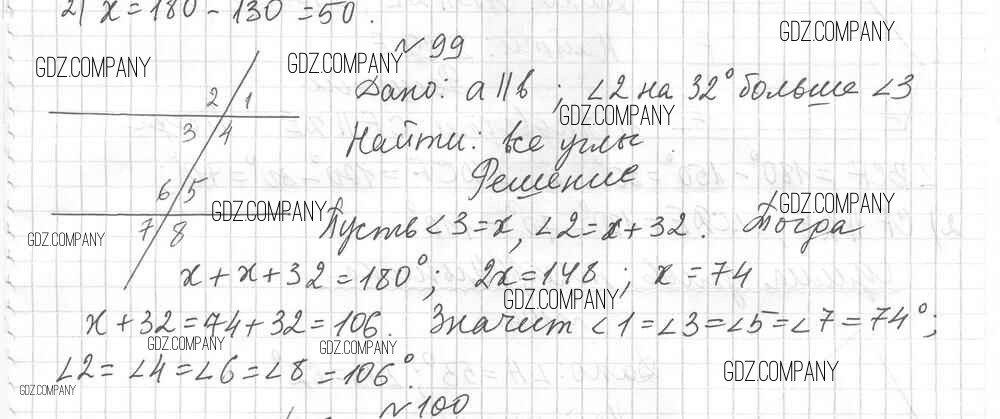 2) x = 180 - 130 = 50.
№ 99
GDZ.COMPANY
GDZ.COMPANY
GDZ.COMPANY
Дано: a || b ; ∠2 на 32° больше ∠3
2 1
GDZ.COMPANY
3 4
Найти: все углы
Решение
6 5
GDZ.COMPANY
GDZ.COMPANY
7 8
GDZ.COMPANY
Пусть ∠3 = x, ∠2 = x + 32. Тогда
x + x + 32 = 180°; 2x = 148 ; x = 74
GDZ.COMPANY
x + 32 = 74 + 32 = 106. Значит ∠1 = ∠3 = ∠5 = ∠7 = 74°;
GDZ.COMPANY
GDZ.COMPANY
∠2 = ∠4 = ∠6 = ∠8 = 106°.
GDZ.COMPANY
GDZ.COMPANY
№ 100